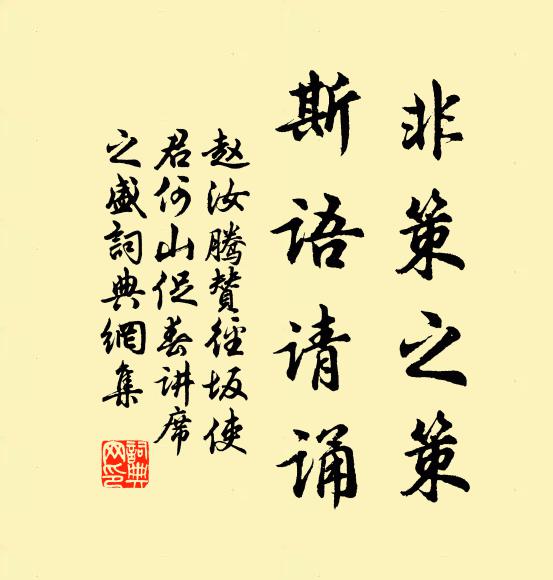 非策之策
斯语请诵
赵汝腾赞徑坂使
君何山促春讲席
之盛詞典網集
詞典
网印